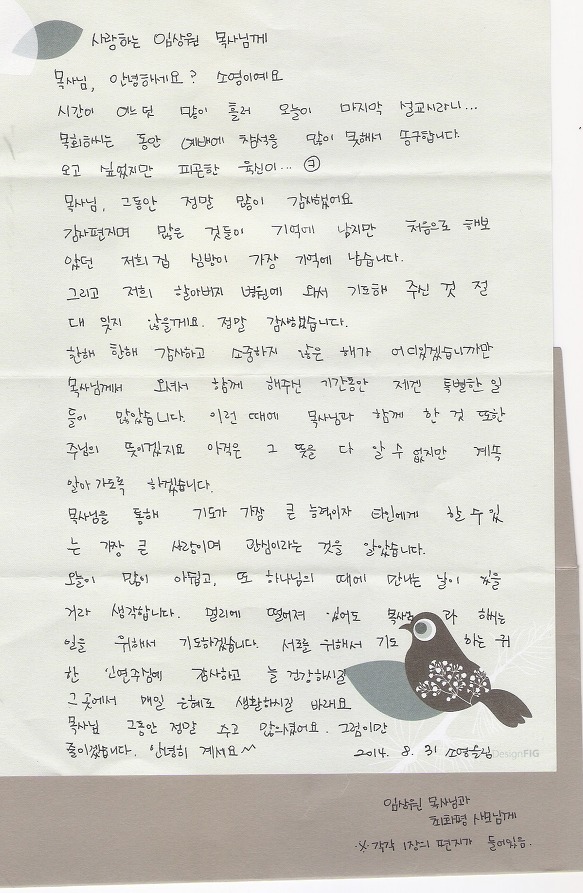 사랑하는 임상원 목사님께
목사님, 안녕하세요? 소영이예요
시간이 어느 덧 많이 흘러 오늘이 마지막 설교시라니...
목회하시는 동안 예배에 참석을 많이 못해서 죄송합니다.
오고 싶었지만 피곤한 육신이...
목사님, 그동안 정말 많이 감사했어요
감사편지며 많은 것들이 기억에 남지만 처음으로 해보
았던 저희집 심방이 가장 기억에 남습니다.
그리고 저희 할아버지 병원에 와서 기도해 주신 것 절
대 잊지 않을게요. 정말 감사했습니다.
한해 한해 감사하고 소중하지 않은 해가 어디있겠습니까만
목사님께서 오셔서 함께 해주신 기간동안 제겐 특별한 일
들이 많았습니다. 이런 때에 목사님과 함께 한 것 또한
주님의 뜻이겠지요 아직은 그 뜻을 다 알 수 없지만 계속
알아 가도록 하겠습니다.
목사님을 통해 기도가 가장 큰 능력이자 타인에게 할 수 있
는 가장 큰 사랑이며 관심이라는 것을 알았습니다.
오늘이 많이 아쉽고, 또 하나님의 때에 만나는 날이 있을
거라 생각합니다. 멀리에 떨어져 있어도 목사님 과 하시는
일을 위해서 기도하겠습니다. 서로를 위해서 기도 하는 귀
한 인연주심에 감사하고 늘 건강하시길
그 곳에서 매일 은혜로 생활하시길 바래요
목사님 그동안 정말 수고 많으셨어요. 그럼이만
줄이겠습니다. 안녕히 계세요~ 2014. 8. 31 소영올림
DesignFIG
임상원 목사님과
최화평 사모님께
※ 각각 1장의 편지가 들어있음.